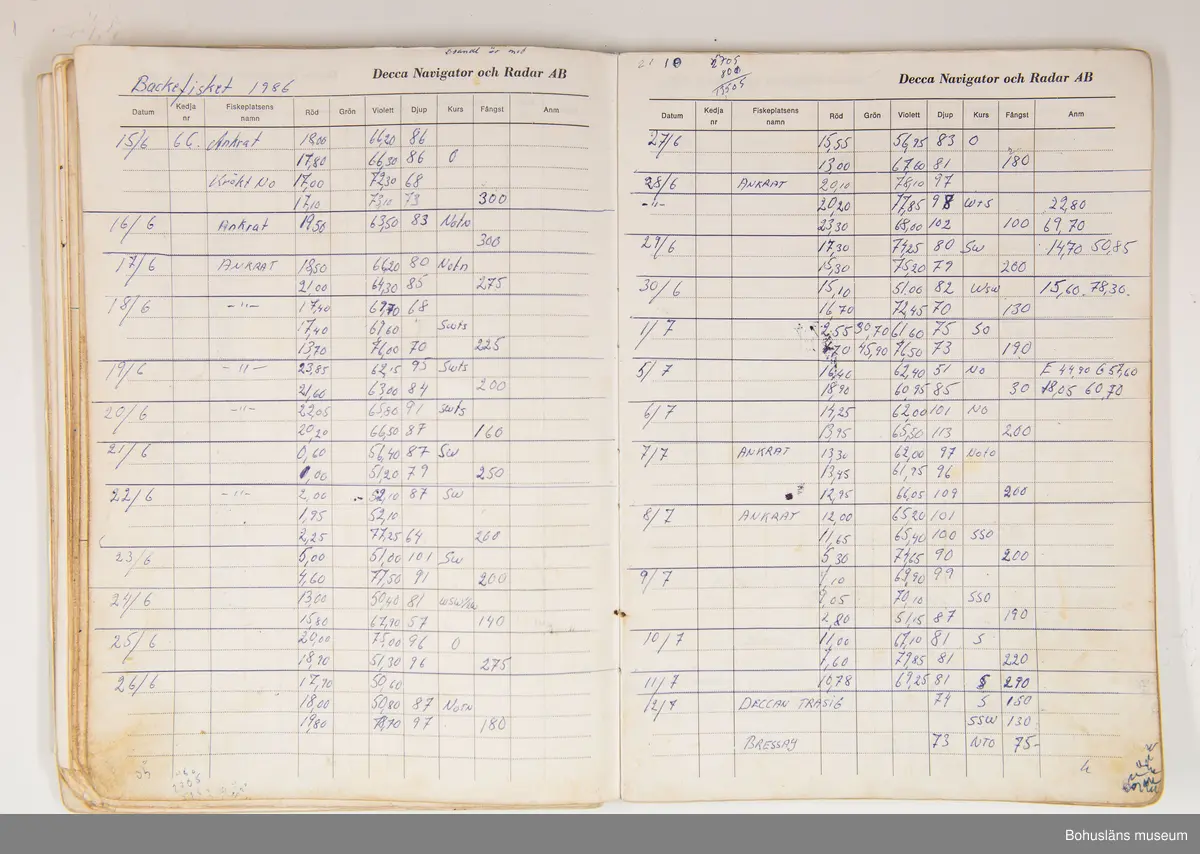 Decca Navigator och Radar AB
Backefisket 1986
Datum Kedja nr Fiskeplatsens namn Röd Grön Violett Djup Kurs Fångst Anm
15/6 6C. Ankrat 18,00 66,20 86
17,80 66,30 86 O
Krökt No 17,00 72,30 68
17,10 73,10 73 300
16/6 Ankrat 19,50 63,50 83 Notn
300
17/6 ANKRAT 18,50 66,20 80 Notn
21,00 64,30 85 275
18/6 -"- 17,40 69,70 68
17,40 69,60 Swts
13,70 76,00 70 225
19/6 -"- 23,85 62,15 95 Swts
21,60 63,00 84 200
20/6 -"- 22,05 65,80 91 swts
20,20 66,50 87 160
21/6 0,60 56,40 87 Sw
1,00 51,20 79 250
22/6 -"- 2,00 52,10 87 Sw
1,95 52,10
2,25 77,25 64 200
23/6 5,00 51,00 101 Sw
4,60 77,50 91 200
24/6 13,00 50,40 81
15,80 67,90 57 140
25/6 20,00 75,00 96 O
18,90 51,30 96 275
26/6 17,90 50,60
18,00 50,80 87 Notn
19,80 97 180
10
2705
800
Decca Navigator och Radar AB
Datum Kedja nr Fiskeplatsens namn Röd Grön Violett Djup Kurs Fångst Anm
27/6 15,55 56,95 83 O
13,00 67,60 81 180
28/6 ANKRAT 20,10 78,10 97
-"- 20,20 77,85 98 WTS 22,80
23,30 68,00 102 100 69,70
29/6 17,30 74,25 80 SW 14,70 50,85
15,30 75,20 79 200
30/6 15,10 51,00 82 WSW 15,60. 78,30.
16,70 72,45 70 130
1/7 2,55 30,70 61,60 75 SO
70 45,90 76,50 73 190
5/7 16,40 62,40 51 No E 44,90 G 57,60
18,90 60,95 85 30 18,05 60,70
6/7 14,25 62,00 101 NO
13,95 65,50 113 200
7/7 ANKRAT 13,30 62,00 97 Noto
13,45 61,95 96
12,95 66,05 109 200
8/7 ANKRAT 12,00 65,20 101
11,65 65,40 100 SSO
5,30 79,65 90 200
9/7 1,10 69,90 99
1,05 70,10 SSO
2,80 51,15 87 190
10/7 11,00 67,10 81 S
1,60 79,85 81 220
11/7 10,78 69,25 81 S 290
12/7 DECCAN TRASIG 74 S 150
SSW 130
BRESSAY 73 NTO 75-
Bohusläns museum